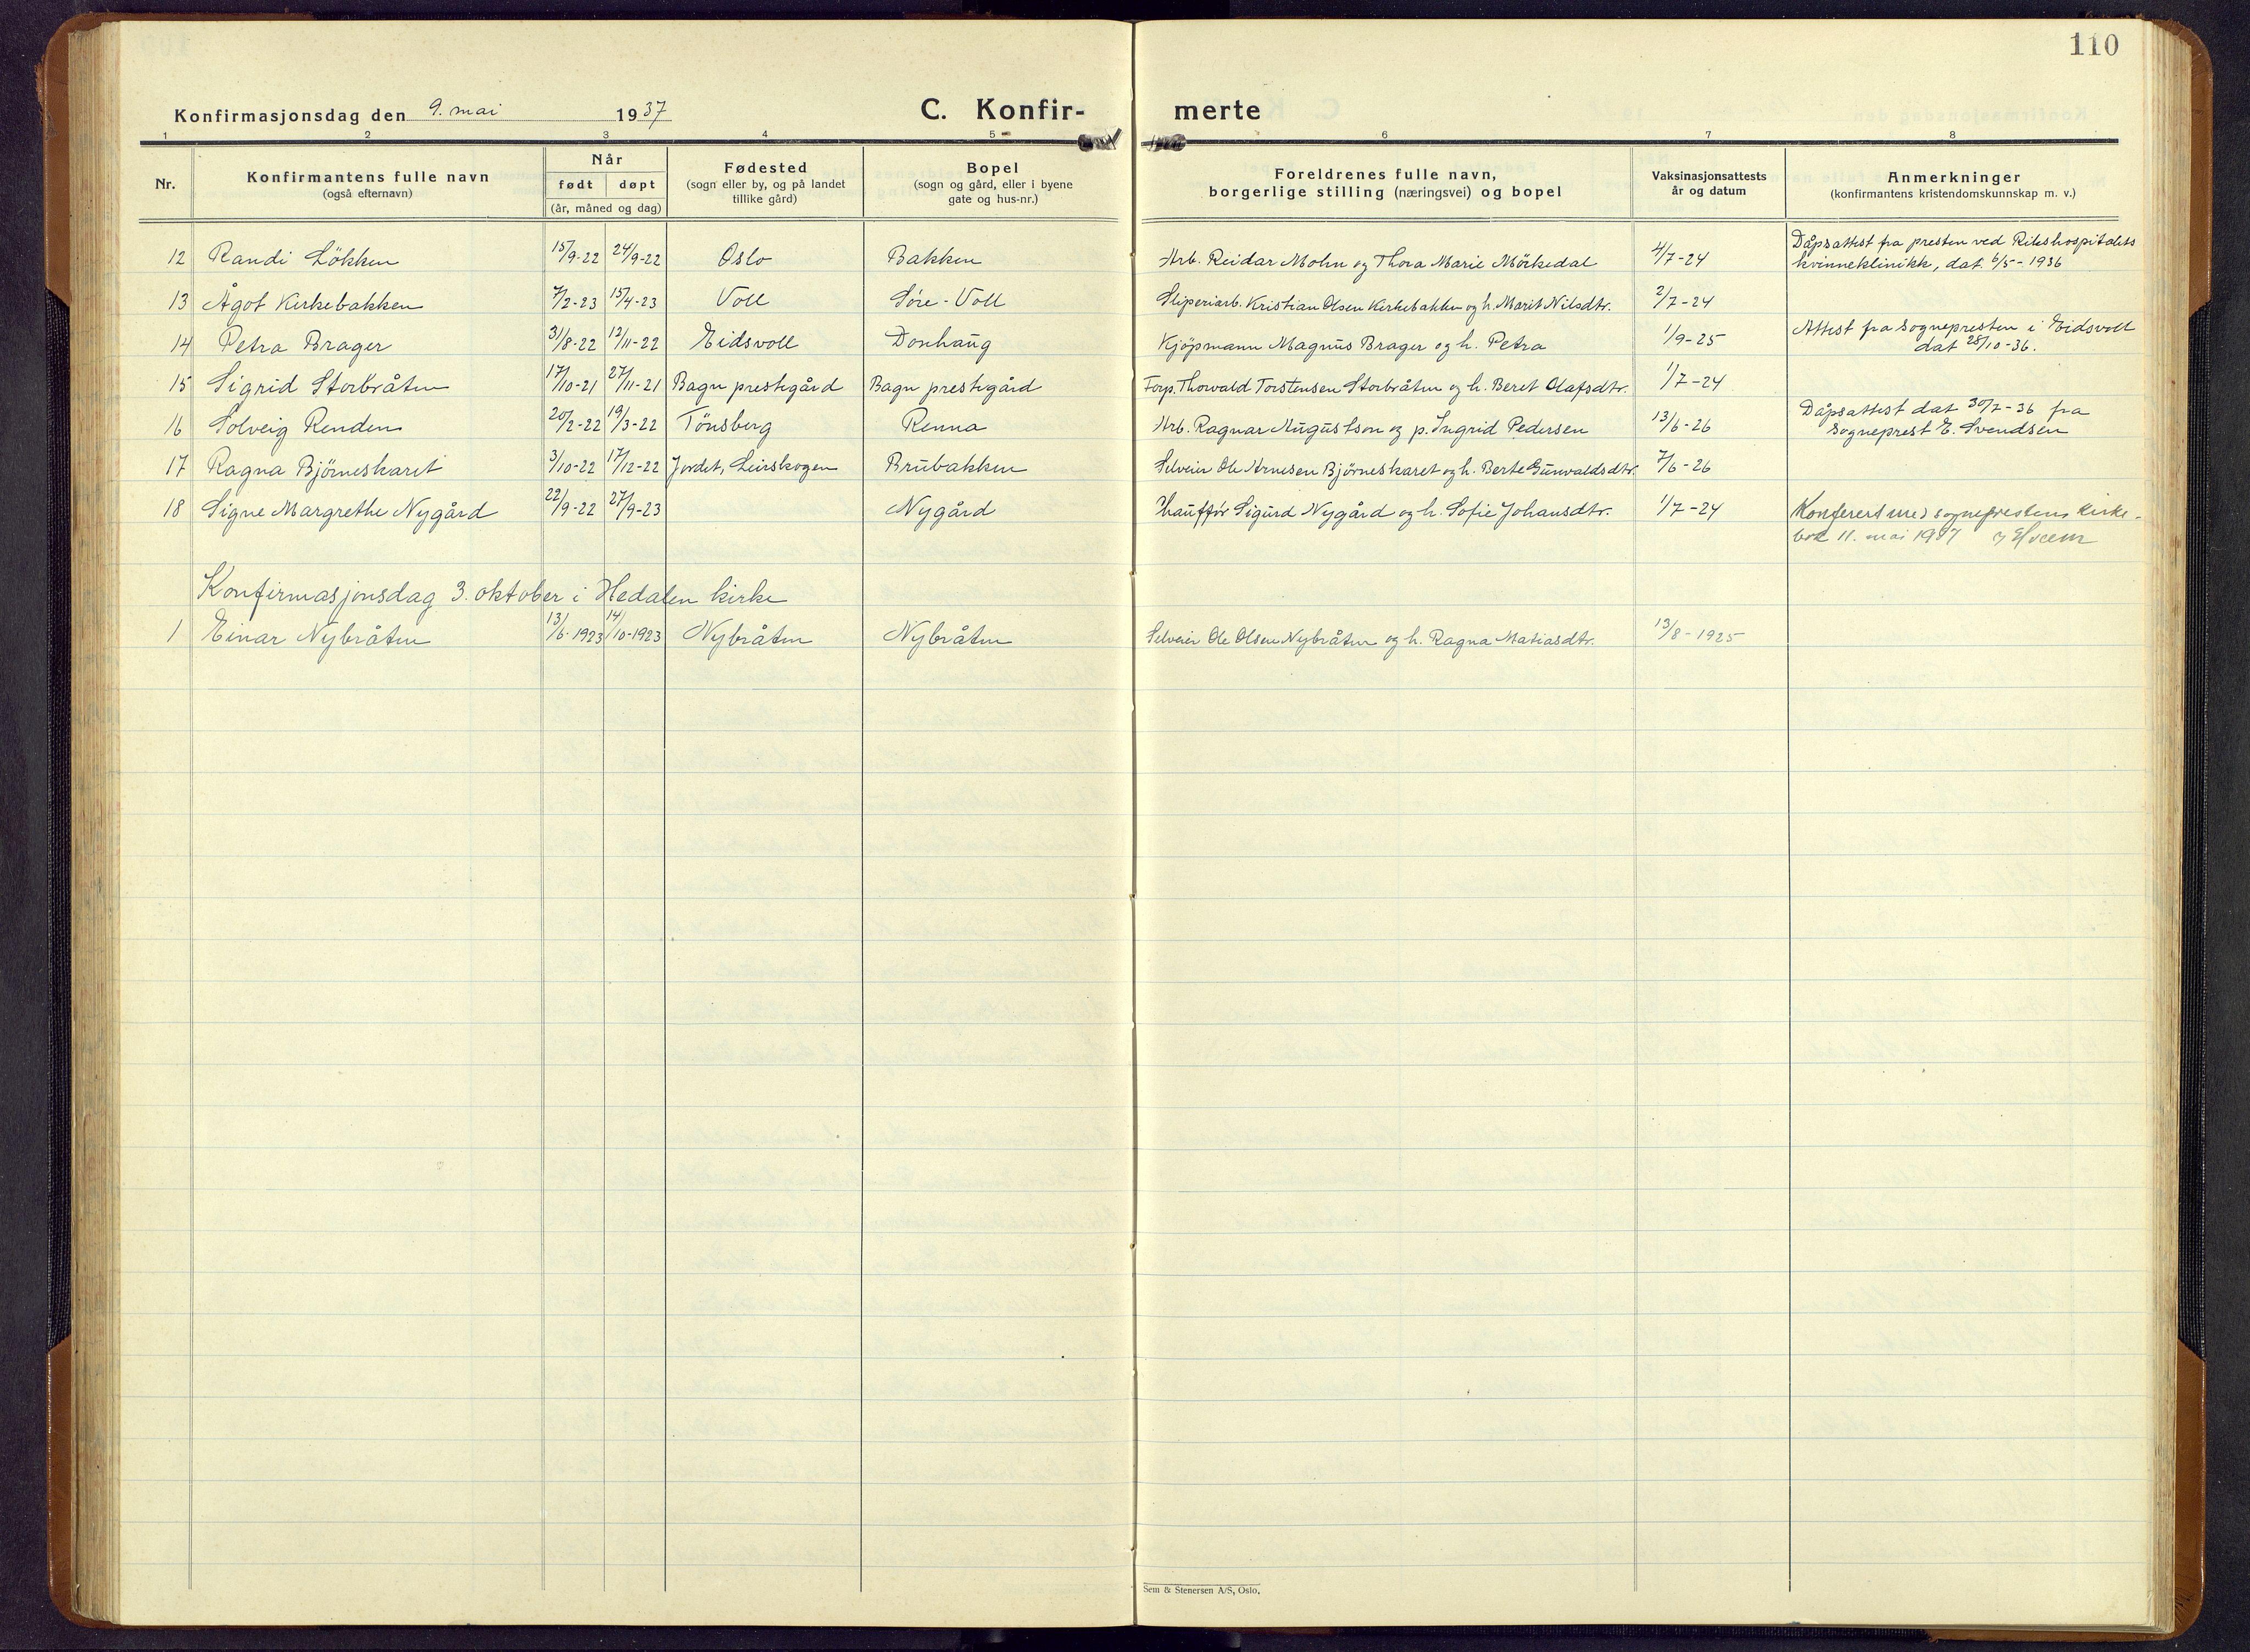 110
Konfirmasjonsdag den 9. mai 1937
C. Konfir- merte
1 2 3 4 5 6 7 8
Nr.
Konfirmantens fulle navn
(også efternavn)
Når
født døpt
(år, måned og dag)
Fødested
(sogn eller by, og på landet
tillike gård)
Bopel
(sogn og gård, eller i byene
gate og hus-nr.)
Foreldrenes fulle navn,
borgerlige stilling (næringsvei) og bopel
Vaksinasjonsattests
år og datum
Anmerkninger
(konfirmantens kristendomskunnskap m. v.)
12 Randi Lökken 15/9-22 24/9-22 Oslo Bakken Arb. Reidar Mohn og Thora Marie Mörkedal 4/7-24 Dåpsattest fra presten ved Rikshospitalets
kvinneklinikk, dat. 6/5-1936
13 Ågot Kirkebakken 7/2-23 15/4-23 Voll Søre-Voll Sliperiarb. Kristian Olsen Kirkebakken og h. Marit Nilsdtr. 2/7-24
14 Petra Brager 31/8-22 12/11-22 Eidsvoll Donhaug Kjöpmann Magnus Brager og h. Petra 1/9-25 Attest fra sognepresten i Eidsvoll
dat 28/10-36.
15 Sigrid Storbråten 17/10-21 27/11-21 Bagn prestegård Bagn prestegård Forp. Thorvald Torstensen Storbråten og h. Beret Olafsdtr. 1/7-24
16 Solveig Renden 20/2-22 19/3-22 Tönsberg Renna Arb. Ragnar Augustson og p. Ingrid Pedersen 13/6-26 Dåpsattest dat 30/7-36 fra
Sogneprest E. Svendsen
17 Ragna Björneskaret 3/10-22 17/12-22 Jordet, Leirskogen Brubakken Selveier Ole Arnesen Bjørneskaret og h. Berte Gunvaldsdtr. 7/6-26
18 Signe Margrethe Nygård 22/9-22 27/9-23 Nygård Chauffør Sigurd Nygård og h. Sofie Johansdtr. 1/7-24 Konferert med sogneprestens kirke-
bok 11. mai 1937
Konfirmasjonsdag 3. oktober i Hedalen kirke
1 Einar Nybråten 13/6-1923 14/10-1923 Nybråten Nybråten Selveier Ole Olsen Nybråten og h. Ragna Matiasdtr. 13/8-1925
Sem & Stenersen A/S, Oslo.